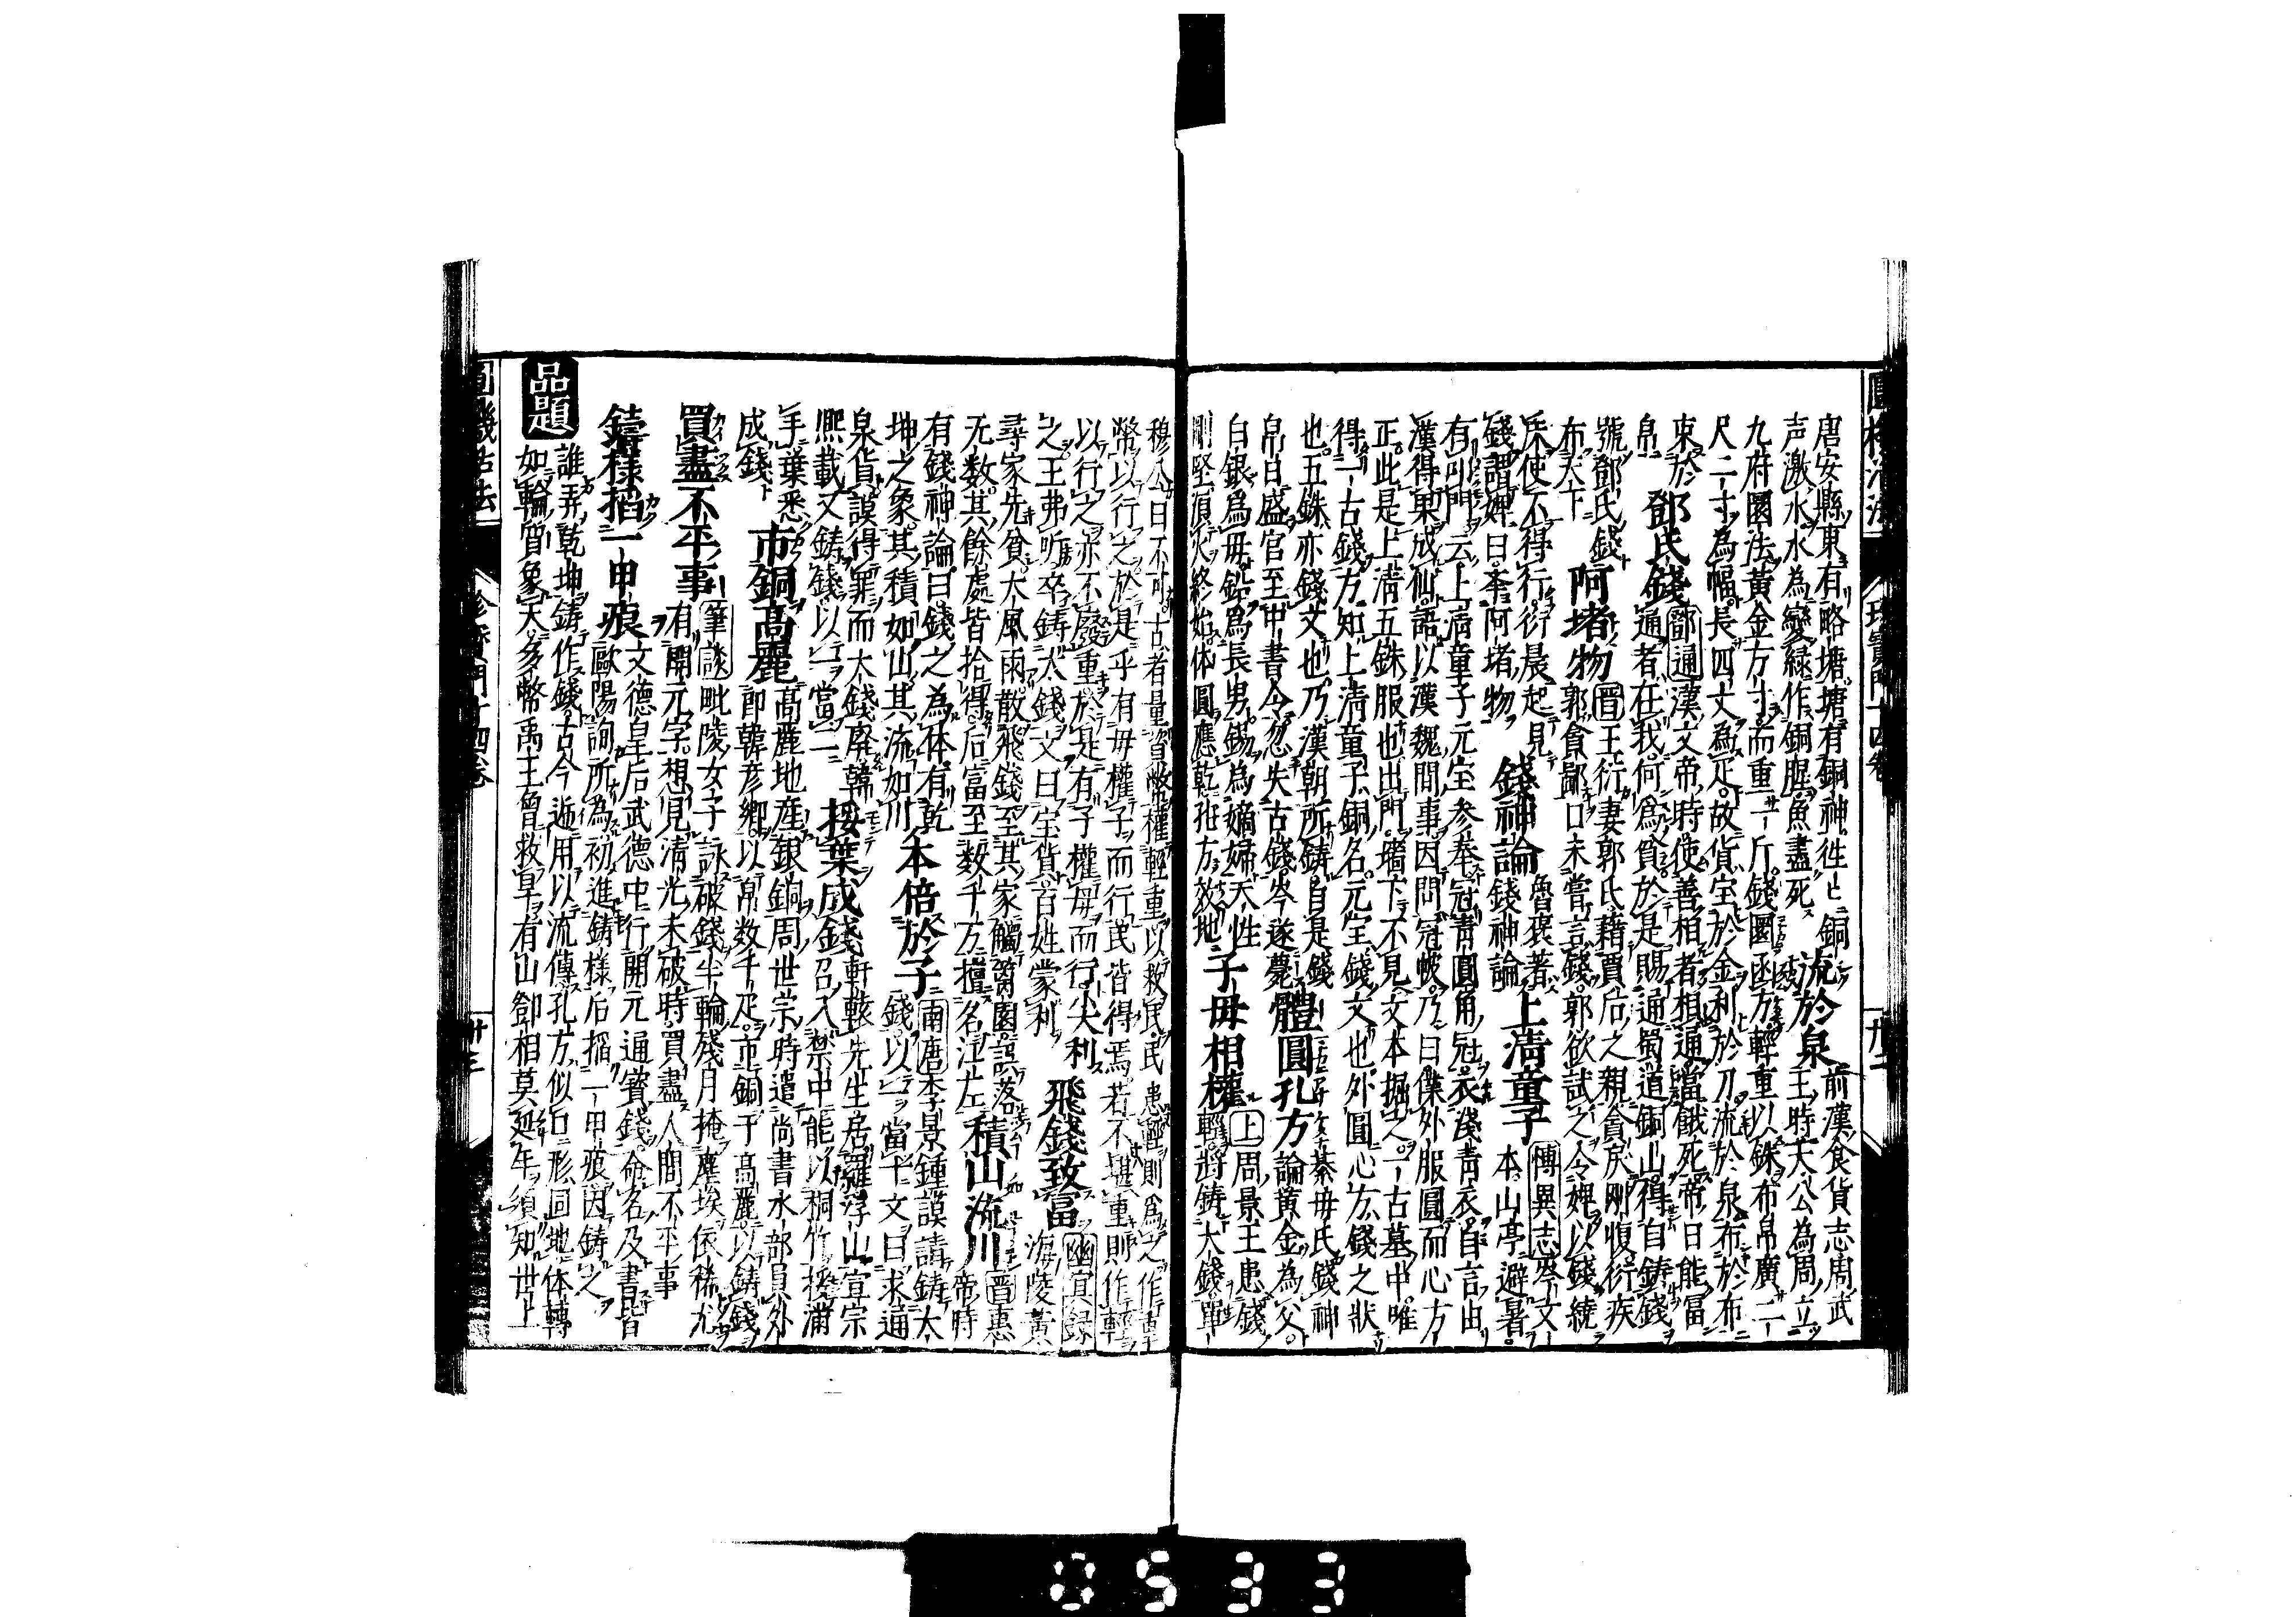 唐安縣東有略塘塘有銅神往〻銅
声激水水為變緑作銅腥魚盡死 流於泉 前漢食貨志周武
王時太公為周立
九府圜法黄金方寸而重一斤錢圜函方輕重以銖布帛廣二
尺二寸為幅長四丈為疋故貨宝於金利於刀流於泉布於布
束於
帛 鄧氏錢 鄧通漢文帝時使善相者相通當餓死帝曰能冨
通者在我何為貧於是賜通蜀道銅山得自鋳錢
號鄧氏錢
布天下 阿堵物 晋王衍妻郭氏藉賈后之親貪戻剛愎衍疾
郭貪鄙口未嘗言錢郭欲試之令婢以錢繞
床使不得行衍晨起見
錢謂婢曰挙阿堵物 錢神論 魯褒著
錢神論 上清童子 博異志岑文
本山亭避暑
有叩門云上清童子元宝参奉冠青圓角冠衣淺青衣自言由
漢得果成仙語以漢魏間事因問冠帔乃曰僕外服圓而心方
正此是上清五銖服也出門墻下不見文本掘之一古墓中唯
得一古錢方知上清童子銅名元宝錢文也外圓心方錢之状
也五銖亦錢文也乃漢朝所鋳自是錢
帛日盛官至中書令忽失古錢岑遂薨 體圓孔方 綦毋氏錢神
論黄金為父
白銀為母鉛為長男錫為嫡婦天性
剛堅須火終始体圓應乾孔方效地 子母相權 上周景王患錢
輕將鋳大錢單
穆公曰不可古者量資幣權輕重以救民民患輕則為之作重
幣以行之於是乎有母權子而行民皆得焉若不堪重則作輕
以行之亦不廢重於是有子權母而行小大利
之王弗听卒鋳大錢文曰宝貨百姓蒙利 飛錢致富 幽冥録
海陵黄
尋家先貧大風雨散飛錢至其家觸籬園誤落
无数其餘處皆拾得后富至数千万擅名江左 積山流川 晋惠
帝時
有錢神論曰錢之為体有乾
坤之象其積如山其流如川 本倍於子 南唐李景鍾謨請鋳大
錢以一當十文曰永通
泉貨謨得罪而大錢廃韓
熈載又鋳錢以一當二 挼葉成錢 軒轅先生居羅浮山宣宗
召入禁中能以桐竹挼滿
手葉悉
成錢 市銅高麗 高麗地産銀銅周世宗時遣尚書水部員外
郎韓彦卿以帛数千疋市銅于高麗以鋳錢
買盡不平事 筆談毗陵女子詠破錢半輪殘月掩塵埃依稀尤
有開元字想見清光未破時買盡人間不平事
鑄樣搯一甲痕 文德皇后武德中行開元通寳錢命名及書皆
歐陽詢所為初進鋳様后搯一甲痕因鋳之
品題 誰弄乾坤鋳作錢古今遞用以流傳孔方似口形囬地体轉
如輪質象天多幣禹王曾救旱有山鄧相莫延年須知世上
0533